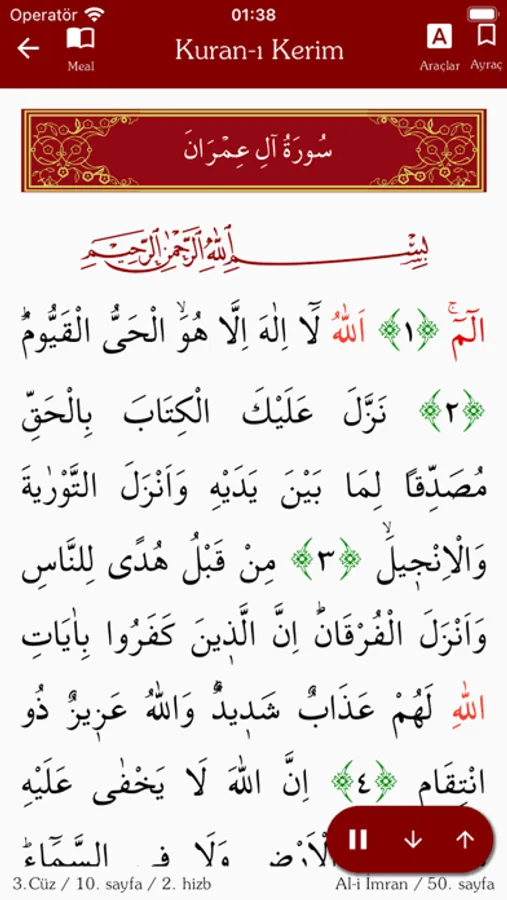 Operatör 01:38
Meal
Kuran-ı Kerim
A
Araçlar
Ayraç
سُورَةُ آلِ عِمْرَانَ
بِسْمِ اللّٰهِ الرَّحْمٰنِ الرَّحِيمِ
الٓمٓۚ ﴿١﴾ اَللّٰهُ لَٓا اِلٰهَ اِلَّا هُوَۙ الْحَىُّ الْقَيُّومُۜ
﴿٢﴾ نَزَّلَ عَلَيْكَ الْكِتَابَ بِالْحَقِّ
مُصَدِّقاً لِمَا بَيْنَ يَدَيْهِ وَاَنْزَلَ التَّوْرٰيةَ
وَالْاِنْج۪يلَۙ ﴿٣﴾ مِنْ قَبْلُ هُدًى لِلنَّاسِ
وَاَنْزَلَ الْفُرْقَانَۜ اِنَّ الَّذ۪ينَ كَفَرُوا بِاٰيَاتِ
اللّٰهِ لَهُمْ عَذَابٌ شَد۪يدٌۜ وَاللّٰهُ عَز۪يزٌ ذُو
انْتِقَامٍ ﴿٤﴾ اِنَّ اللّٰهَ لَا يَخْفٰى عَلَيْهِ
الْاَرْضِ وَلَا فِي السَّمَٓاءِۜ
3.Cüz / 10. sayfa / 2. hizb
Al-i İmran / 50. sayfa